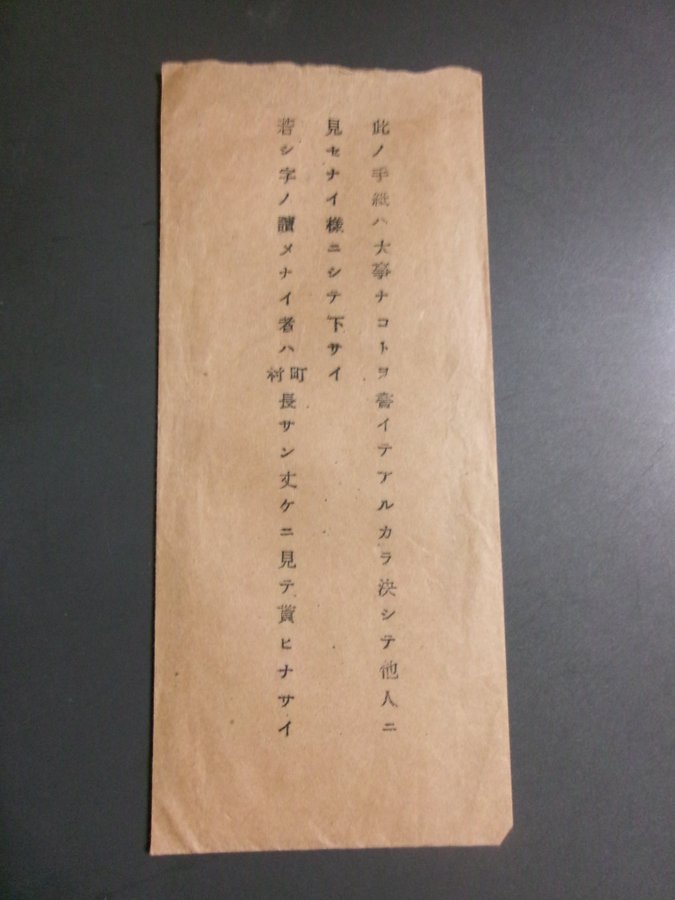 此ノ手紙ハ大事ナコトヲ書イテアルカラ決シテ他人ニ
見セナイ様ニシテ下サイ
若シ字ノ讀メナイ者ハ町村長サン丈ケニ見テ貰ヒナサイ